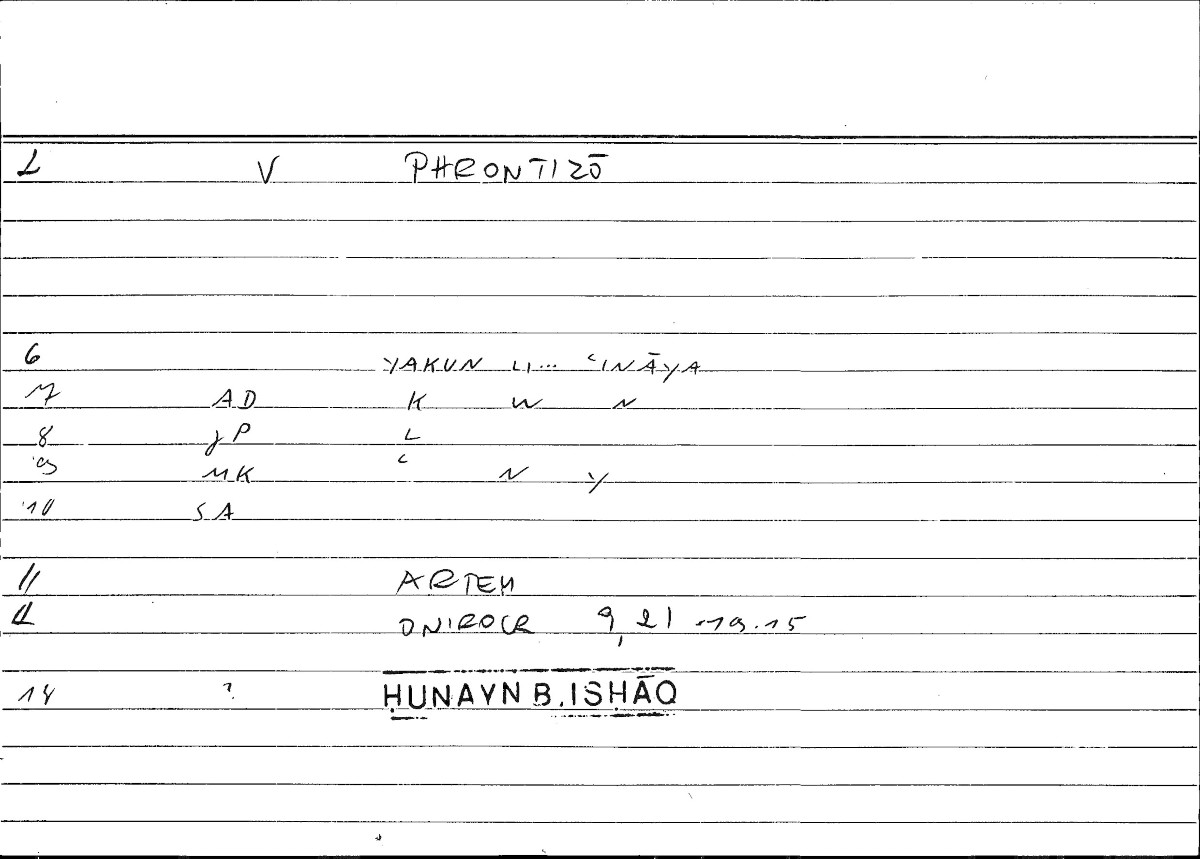 1 V PHRONTIZŌ
6 YAKUN LI... ʿINĀYA
7 AD K W N
8 JP L
9 MK ʿ N Y
10 SA
11 ARTEM
12 ONIROCR 9,21 -19.15
14 ? ḤUNAYN B. ISḤĀQ